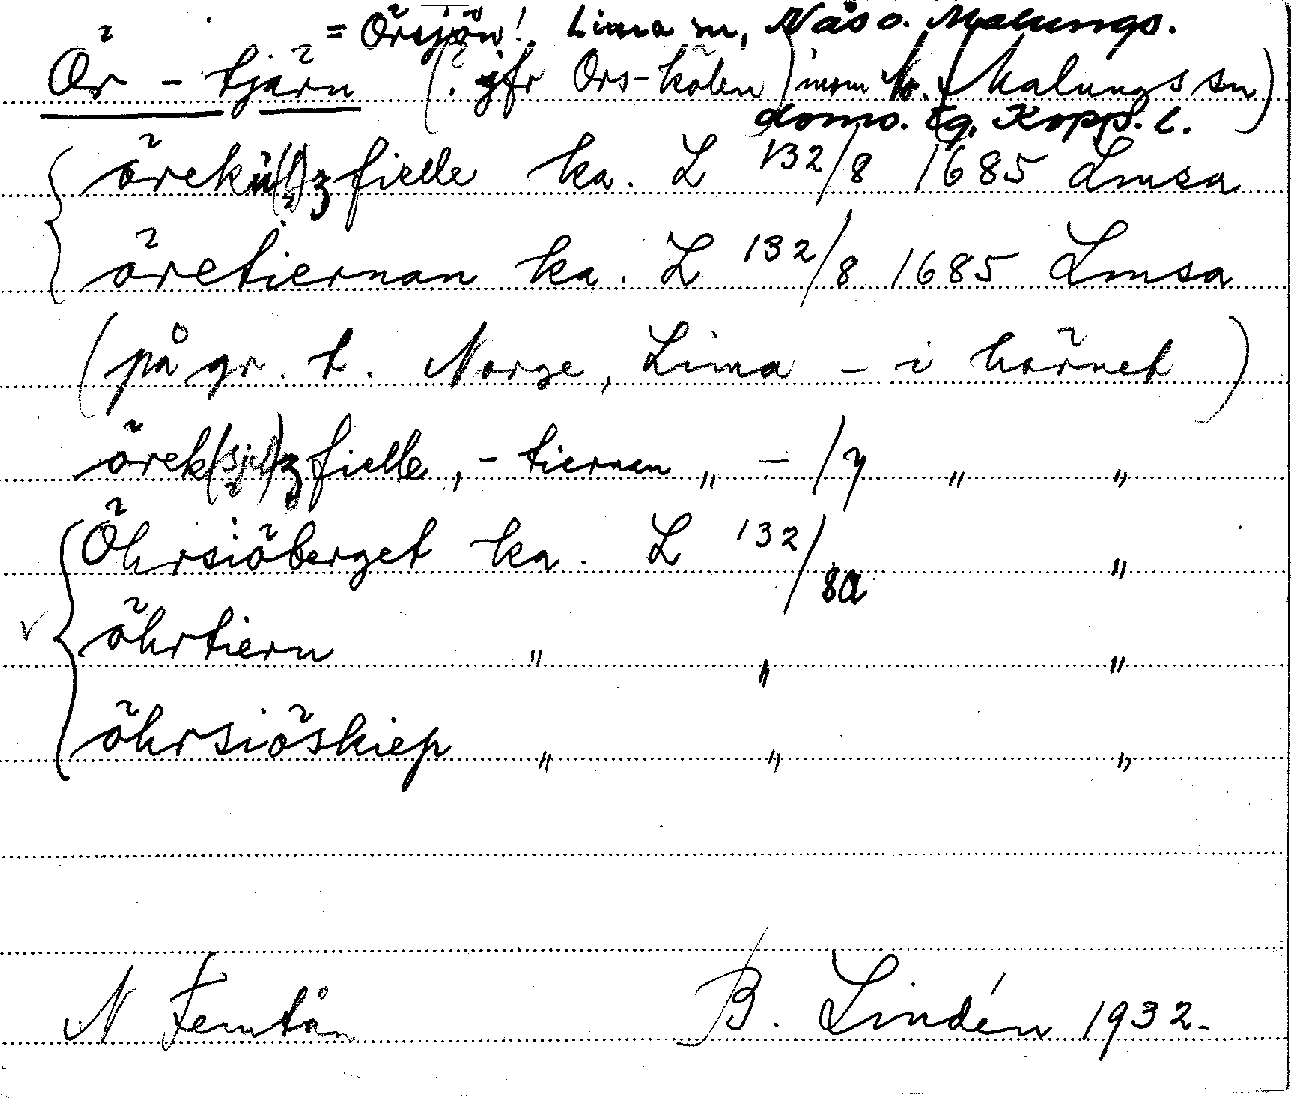 = Örsjön! Lima sn, Näs o. Malungs.
Ör - tjärn (: jfr Ors-kölen) inom (Malungs sn)
doms. Lg. Kopp. l.
örekü(t)z fielle ka. L 132/8 1685 Lmsa
öretiernan ka. L 132/8 1685 Lmsa
(på gr. t. Norge, Lima - i hörnet)
örek(sjö)z fielle, - tiernan " - /7 " "
Öhrsiöberget ka. L 132/8a "
öhrtiern " " "
öhrsiöskiep " " "
N Femtån B. Lindén 1932.